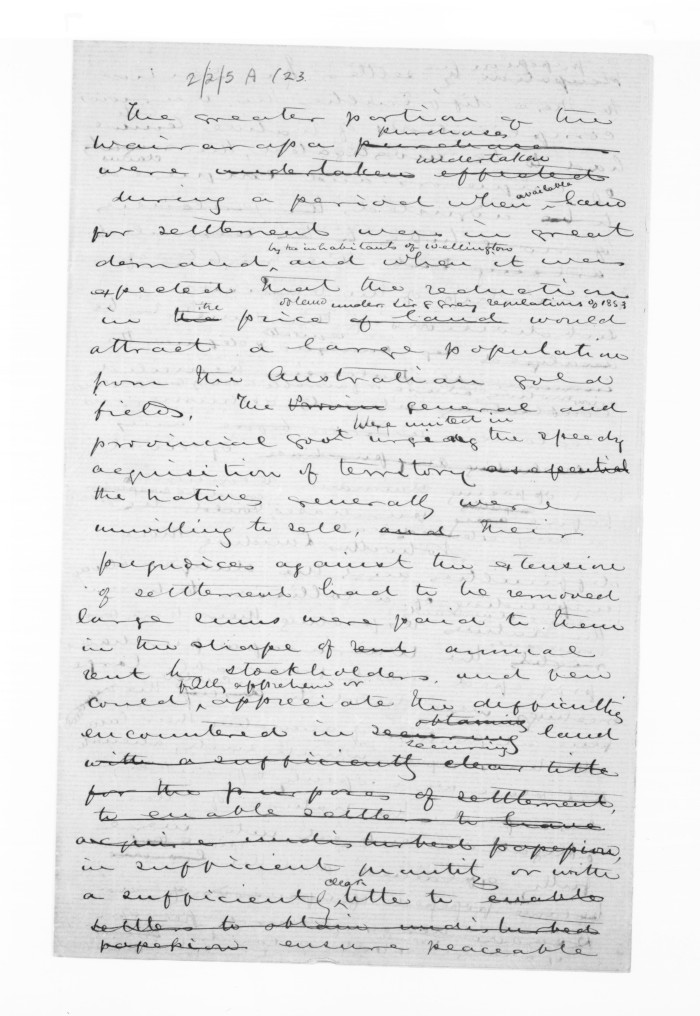 2/2/5 A /23
The greater portion of the
purchases
Wairarapa purchase
undertaken
were undertaken effected
available
during a period when land
for settlement was in great
by the inhabitants of Wellington
demand, and when it was
expected that the reduction
the of land under Sir G Grey regulations of 1853
in the price of land would
attract a large population
from the Australian gold
fields. The Provin general and
were united in
provincial govt urgeing the speedy
acquisition of territory as a essential
the natives generally were
unwilling to sell, and their
prejudices against the extension
of settlement had to be removed
large sums were paid to them
in the shape of rent annual
rent by stockholders, and few
fully apprehend or
could, appreciate the difficulties
obtaining
encountered in securing land
securing
with a sufficiently clear title
for the purposes of settlement,
to enable settlers to have
acquire undisturbed possession,
in sufficient quantity or with
clear
a sufficiently, title to enable
settlers to obtain undisturbed
possession ensure peaceable